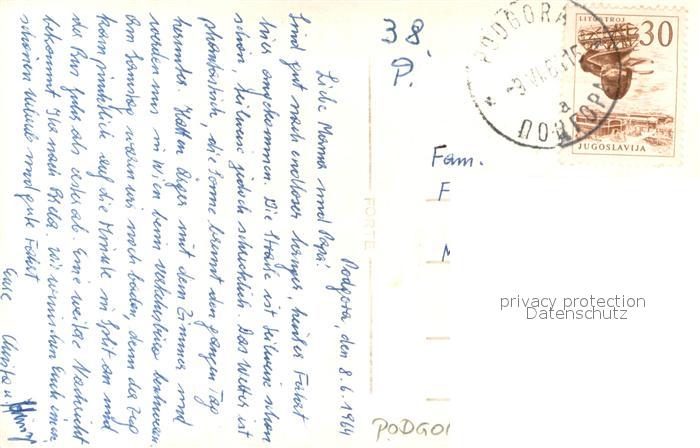 Podgora, den 8.6.1964
Liebe Mamma und Papa!
Sind gut nach endloser langer, heißer Fahrt
hier angekommen. Die Straße ist teilweise schon
schön, teilweise jedoch schrecklich. Das Wetter ist
phantastisch, die Sonne brennt den ganzen Tag
herunter. Hatten Ärger mit dem Zimmer und
werden uns in Wien beim Verkehrsbüro beschweren.
Am Samstag waren wir noch baden, denn der Zug
kam pünktlich auf die Minute in Split an und
der Bus fuhr als erster ab. Eine weitere Nachricht
bekommt Ihr nach Wir wünschen Euch einen
schönen Urlaub und gute Fahrt
Eure Christa u.
38.
P.
FORTE
PODGORA
ПОДГОРА
a
LITOSTROJ
30
JUGOSLAVIJA
Fam.
F
M
privacy protection
Datenschutz
PODGOR